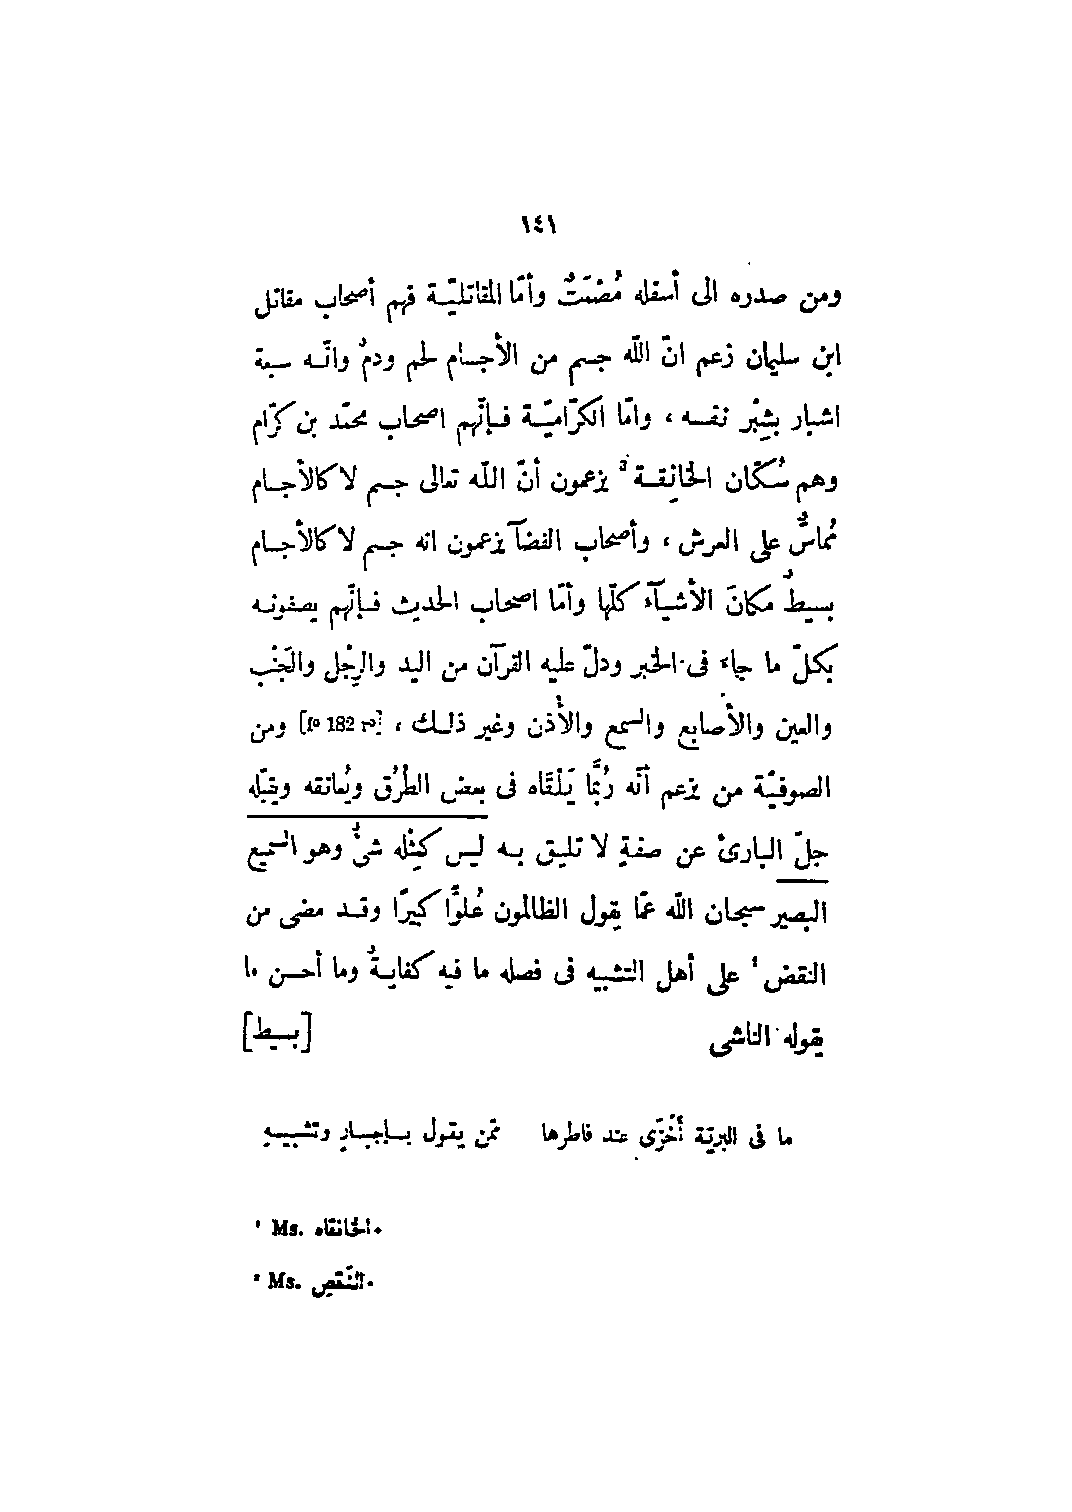 ١٤١
ومن صدره الى أسفله مُصْمَتٌ وأمّا المقاتليّة فهم أصحاب مقاتل
ابن سليمان زعم انّ الله جسم من الأجسام لحم ودمٌ وانّه سبعة
اشبار بشِبْر نفسه ، وامّا الكرّاميّة فإنّهم اصحاب محمّد بن كرّام
وهم سُكّان الخانِقة² يزعمون أنّ الله تعالى جسم لا كالأجسام
مُماسٌّ على العرش ، وأصحاب الفضآ يزعمون انه جسم لا كالأجسام
بسيطٌ مكانَ الأشيآء كلّها وأمّا اصحاب الحديث فإنّهم يصفونه
بكلّ ما جاء فى الخبر ودلّ عليه القرآن من اليد والرِجْل والجَنْب
والعين والأصابع والسمع والأُذن وغير ذلك ، [fº 182 rº] ومن
الصوفيّة من يزعم أنّه رُبَّما يَلْقاه فى بعض الطُرُق ويُعانقه ويقبّله
جلّ البارئ عن صفةٍ لا تليق به ليس كمِثْله شىٌ وهو السميع
البصير سبحان الله عمّا يقول الظالمون عُلوًّا كبيرًا وقد مضى من
النقض¹ على أهل التشبيه فى فصله ما فيه كفايةٌ وما أحسن ما
يقوله الناشى [بسيط]
ما فى البريّة أَخْزَى عند فاطرها ممّن يقول بإجبارٍ وتشبيهٍ
¹ Ms. الخانقاه.
² Ms. النّقص.